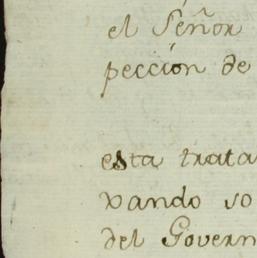 el Señor
peccion de
esta trata
vando so
del Govern